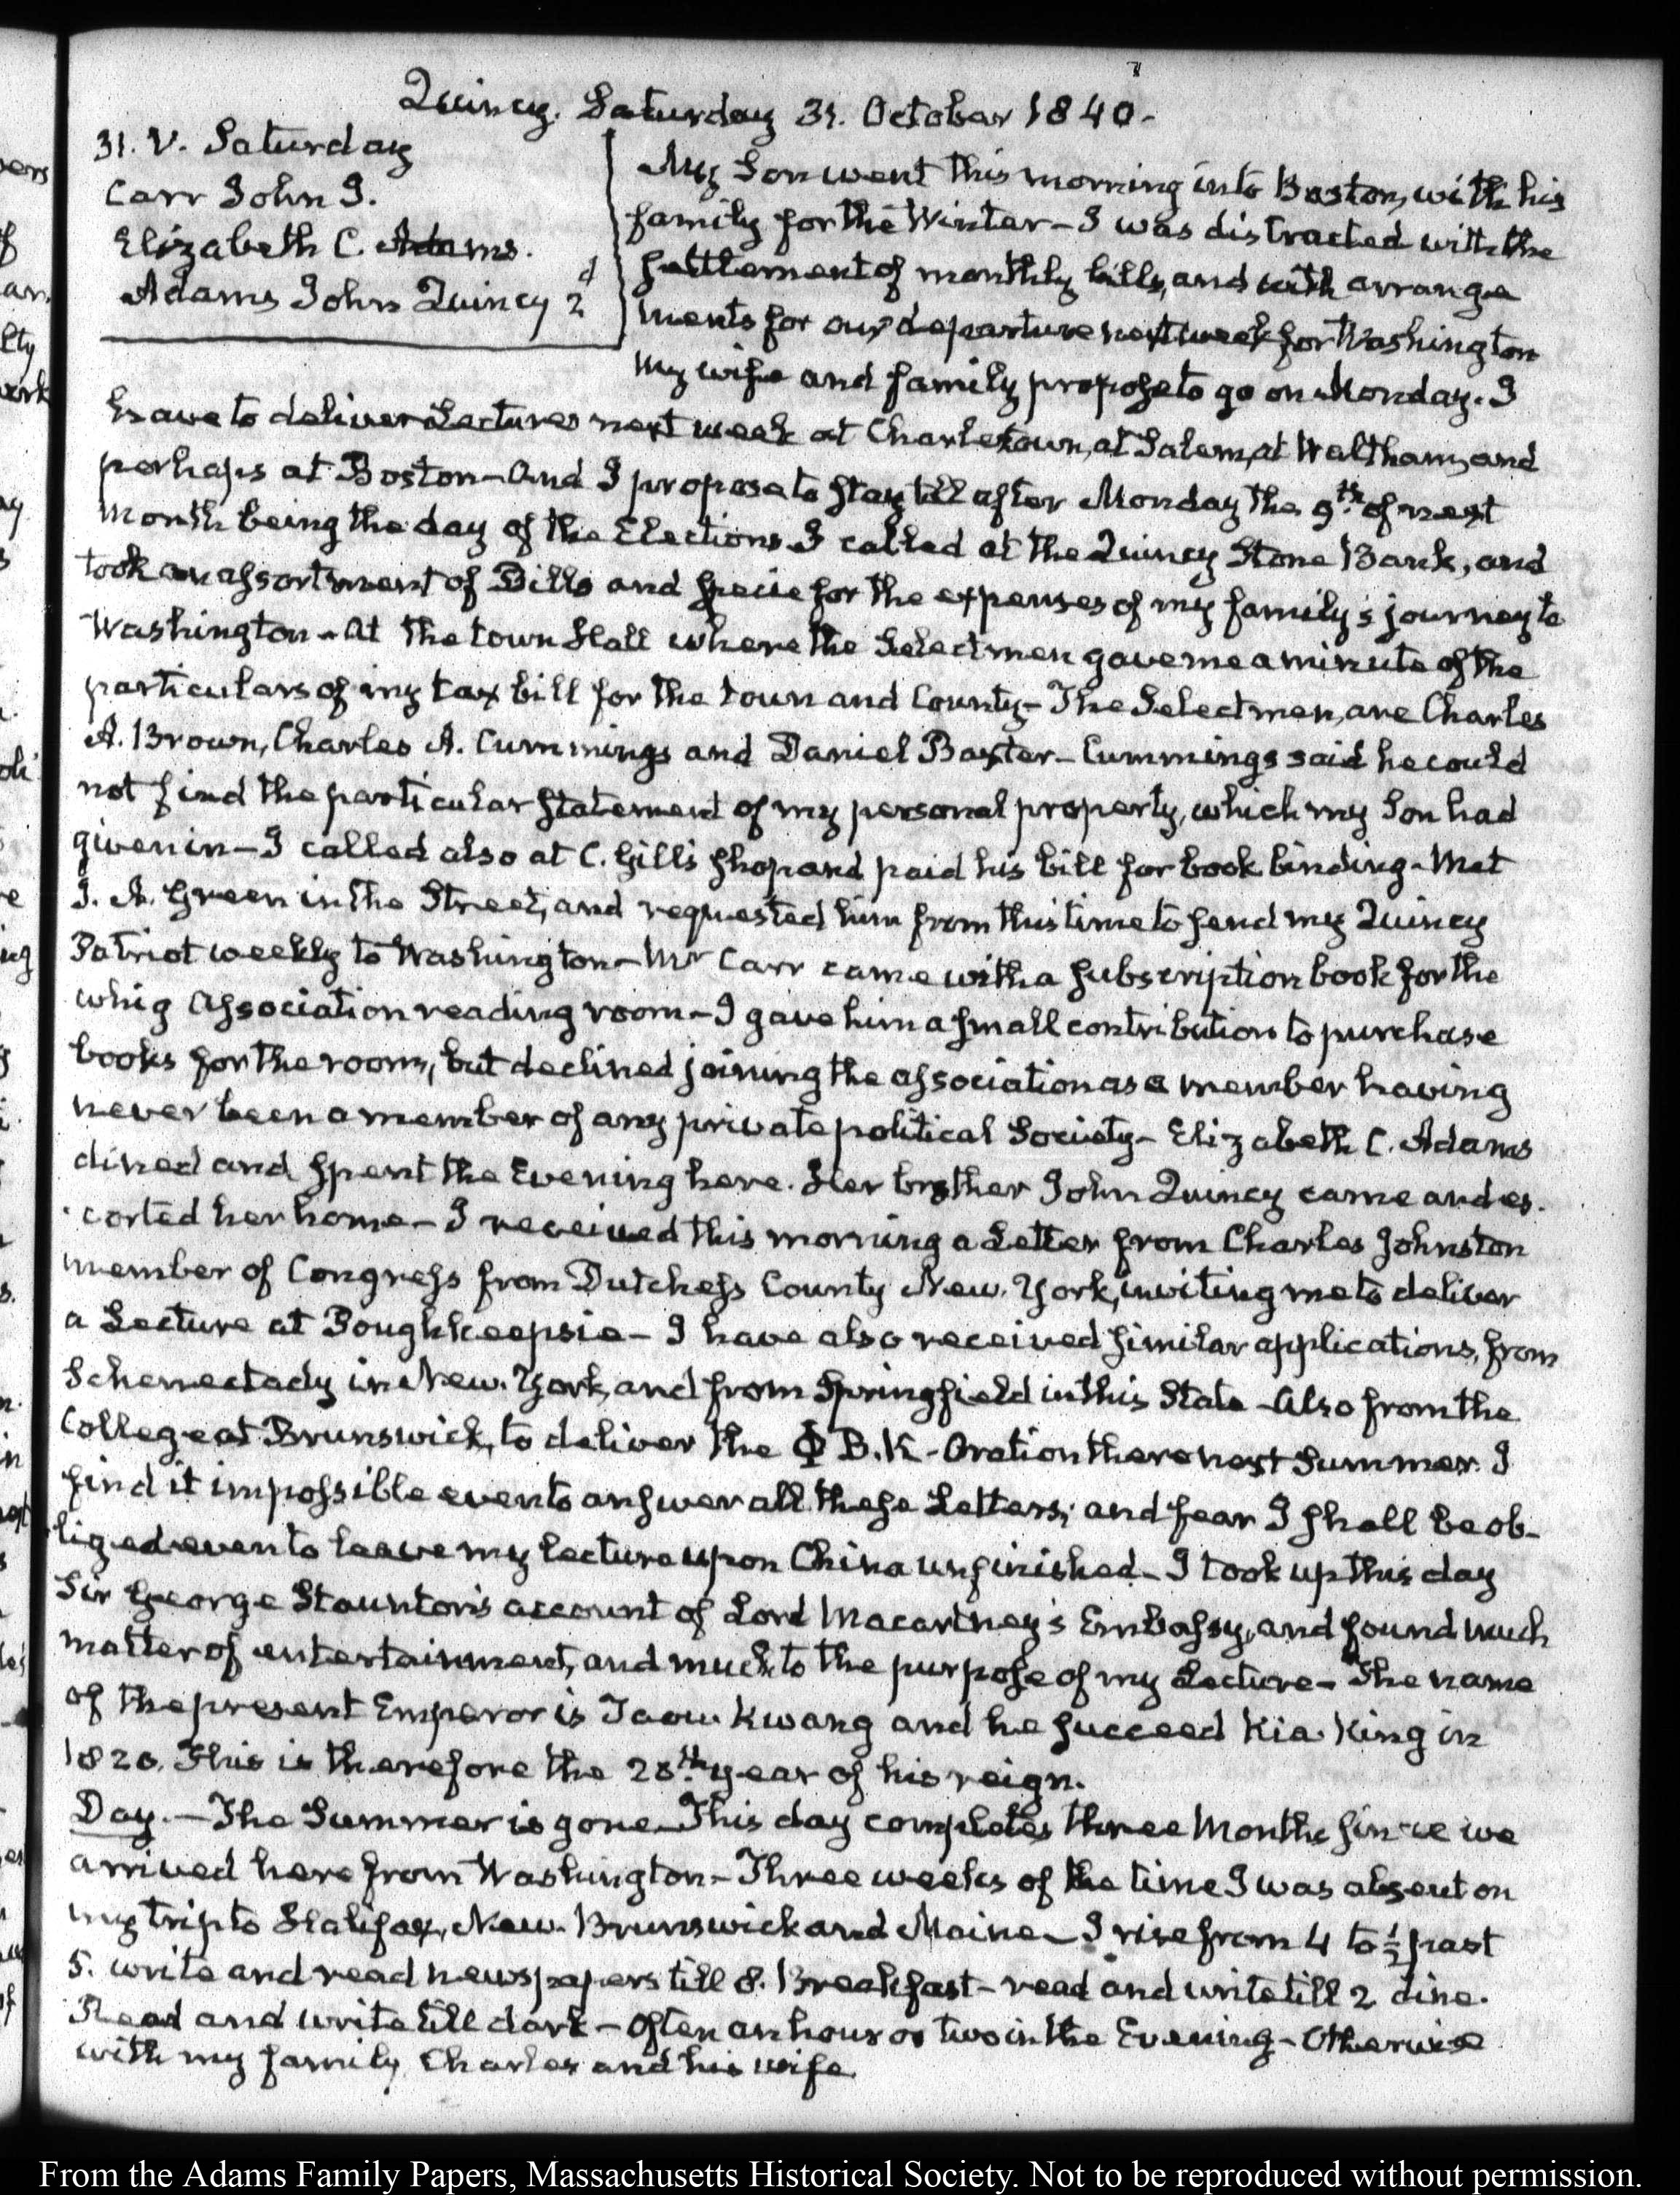 Quincy. Saturday 31. October 1840.
31. V. Saturday
Carr John J.
Elizabeth C. Adams.
Adams John Quincy 2d
My Son went this morning into Boston, with his
family for the Winter – I was distracted with the
settlement of monthly bills, and with arrange
ments for our departure next week for Washington
My wife and family propose to go on Monday. I
have to deliver Lectures next week at Charlestown, at Salem, at Waltham, and
perhaps at Boston – And I propose to stay till after Monday the 9th. of next
Month being the day of the Elections I called at the Quincy Stone Bank, and
took an assortment of Bills and specie for the expenses of my family's journey to
Washington – At the town Hall where the Selectmen gave me a minute of the
particulars of my tax bill for the town and County – The Selectmen, are Charles
A. Brown, Charles A. Cummings and Daniel Baxter – Cummings said he could
not find the particular statement of my personal property, which my Son had
given in – I called also at C. Gill's shop and paid his bill for book binding – Met
J. A. Green in the Street, and requested him from this time to send my Quincy
Patriot weekly to Washington – Mr Carr came with a subscription book for the
whig Association reading room – I gave him a small contribution to purchase
books for the room, but declined joining the association as a member having
never been a member of any private political Society – Elizabeth C. Adams
dined and spent the Evening here. Her brother John Quincy came and es.
corted her home – I received this morning a Letter from Charles Johnston
member of Congress from Dutchess County New-York, inviting me to deliver
a Lecture at Poughkeepsie – I have also received similar applications, from
Schenectady in New-York, and from Springfield in this State – Also from the
College at Brunswick, to deliver the Φ B. K – Oration there next Summer. I
find it impossible even to answer all these Letters; and fear I shall be ob-
liged even to leave my lecture upon China unfinished – I took up this day
Sir George Staunton's account of Lord Macartney's Embassy, and found much
matter of entertainment, and much to the purpose of my Lecture – The name
of the present Emperor is Taou-Kwang and he succeed Kia-King in
1820. This is therefore the 20th. year of his reign.
Day. – The Summer is gone – This day completes three Months since we
arrived here from Washington – Three weeks of the time I was absent on
my trip to Halifax, New-Brunswick and Maine – I rise from 4 to ½ past
5. write and read newspapers till 8. Breakfast – read and write till 2 dine.
Read and write till dark – often an hour or two in the Evening – Otherwise
with my family, Charles and his wife.
From the Adams Family Papers, Massachusetts Historical Society. Not to be reproduced without permission.